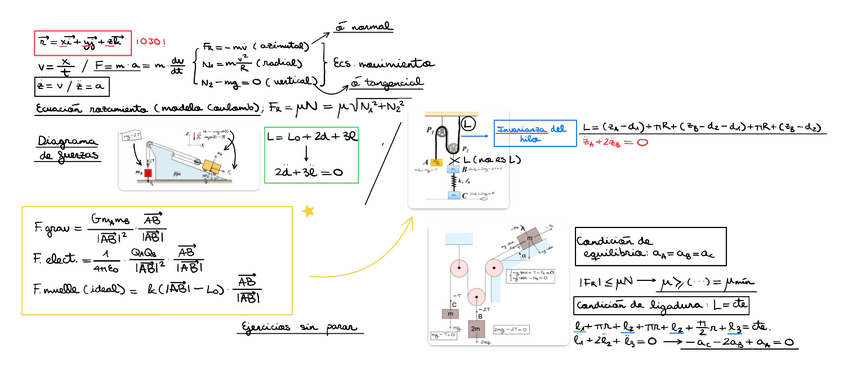 r⃗ = xi⃗ + yj⃗ + zk⃗ ¡OJO!
v = x/t / F = m·a = m·dv/dt
ż = v / z̈ = a
F_R = -mv̇ (azimutal)
N₁ = m v²/R (radial)
N₂ - mg = 0 (vertical)
ó normal
Ecs. movimiento
ó tangencial
Ecuación rozamiento (modelo Coulomb); F_R = μN = μ√(N₁²+N₂²)
Diagrama
de fuerzas
L = L₀ + 2d + 3l
↓
2d̈ + 3l̈ = 0
L
A
B
C
L (no es L)
k, l₀
Invarianza del
hilo
L = (z_A - d₁) + πR + (z_B - d₂ - d₁) + πR + (z_B - d₂)
z̈_A + 2z̈_B = 0
F.grav = G m_A m_B / |AB|² · AB/|AB|
F.elect. = 1/4πε₀ · Q_A Q_B / |AB|² · AB/|AB|
F.muelle (ideal) = k(|AB| - L₀) · AB/|AB|
Ejercicios sin parar
A
m
α
C
m
-T
B
2m
-2T
2mg
mg-T=0
2mg-2T=0
Condición de
equilibrio: a_A = a_B = a_C
|F_R| ≤ μN → μ ≥ (...) = μmín
Condición de ligadura: L = cte
l₁ + πr + l₂ + πr + l₂ + π/2 r + l₃ = cte.
l̈₁ + 2l̈₂ + l̈₃ = 0 → -a_C - 2a_B + a_A = 0